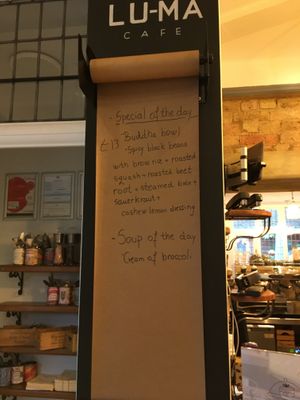 LU-MA
CAFE
- Special of the day
Buddha bowl
£13 - Spicy black beans
with brow rice + roasted
squash + roasted beet
root + steamed kale +
sauerkraut +
cashew lemon dressing
- Soup of the day
Cream of broccoli